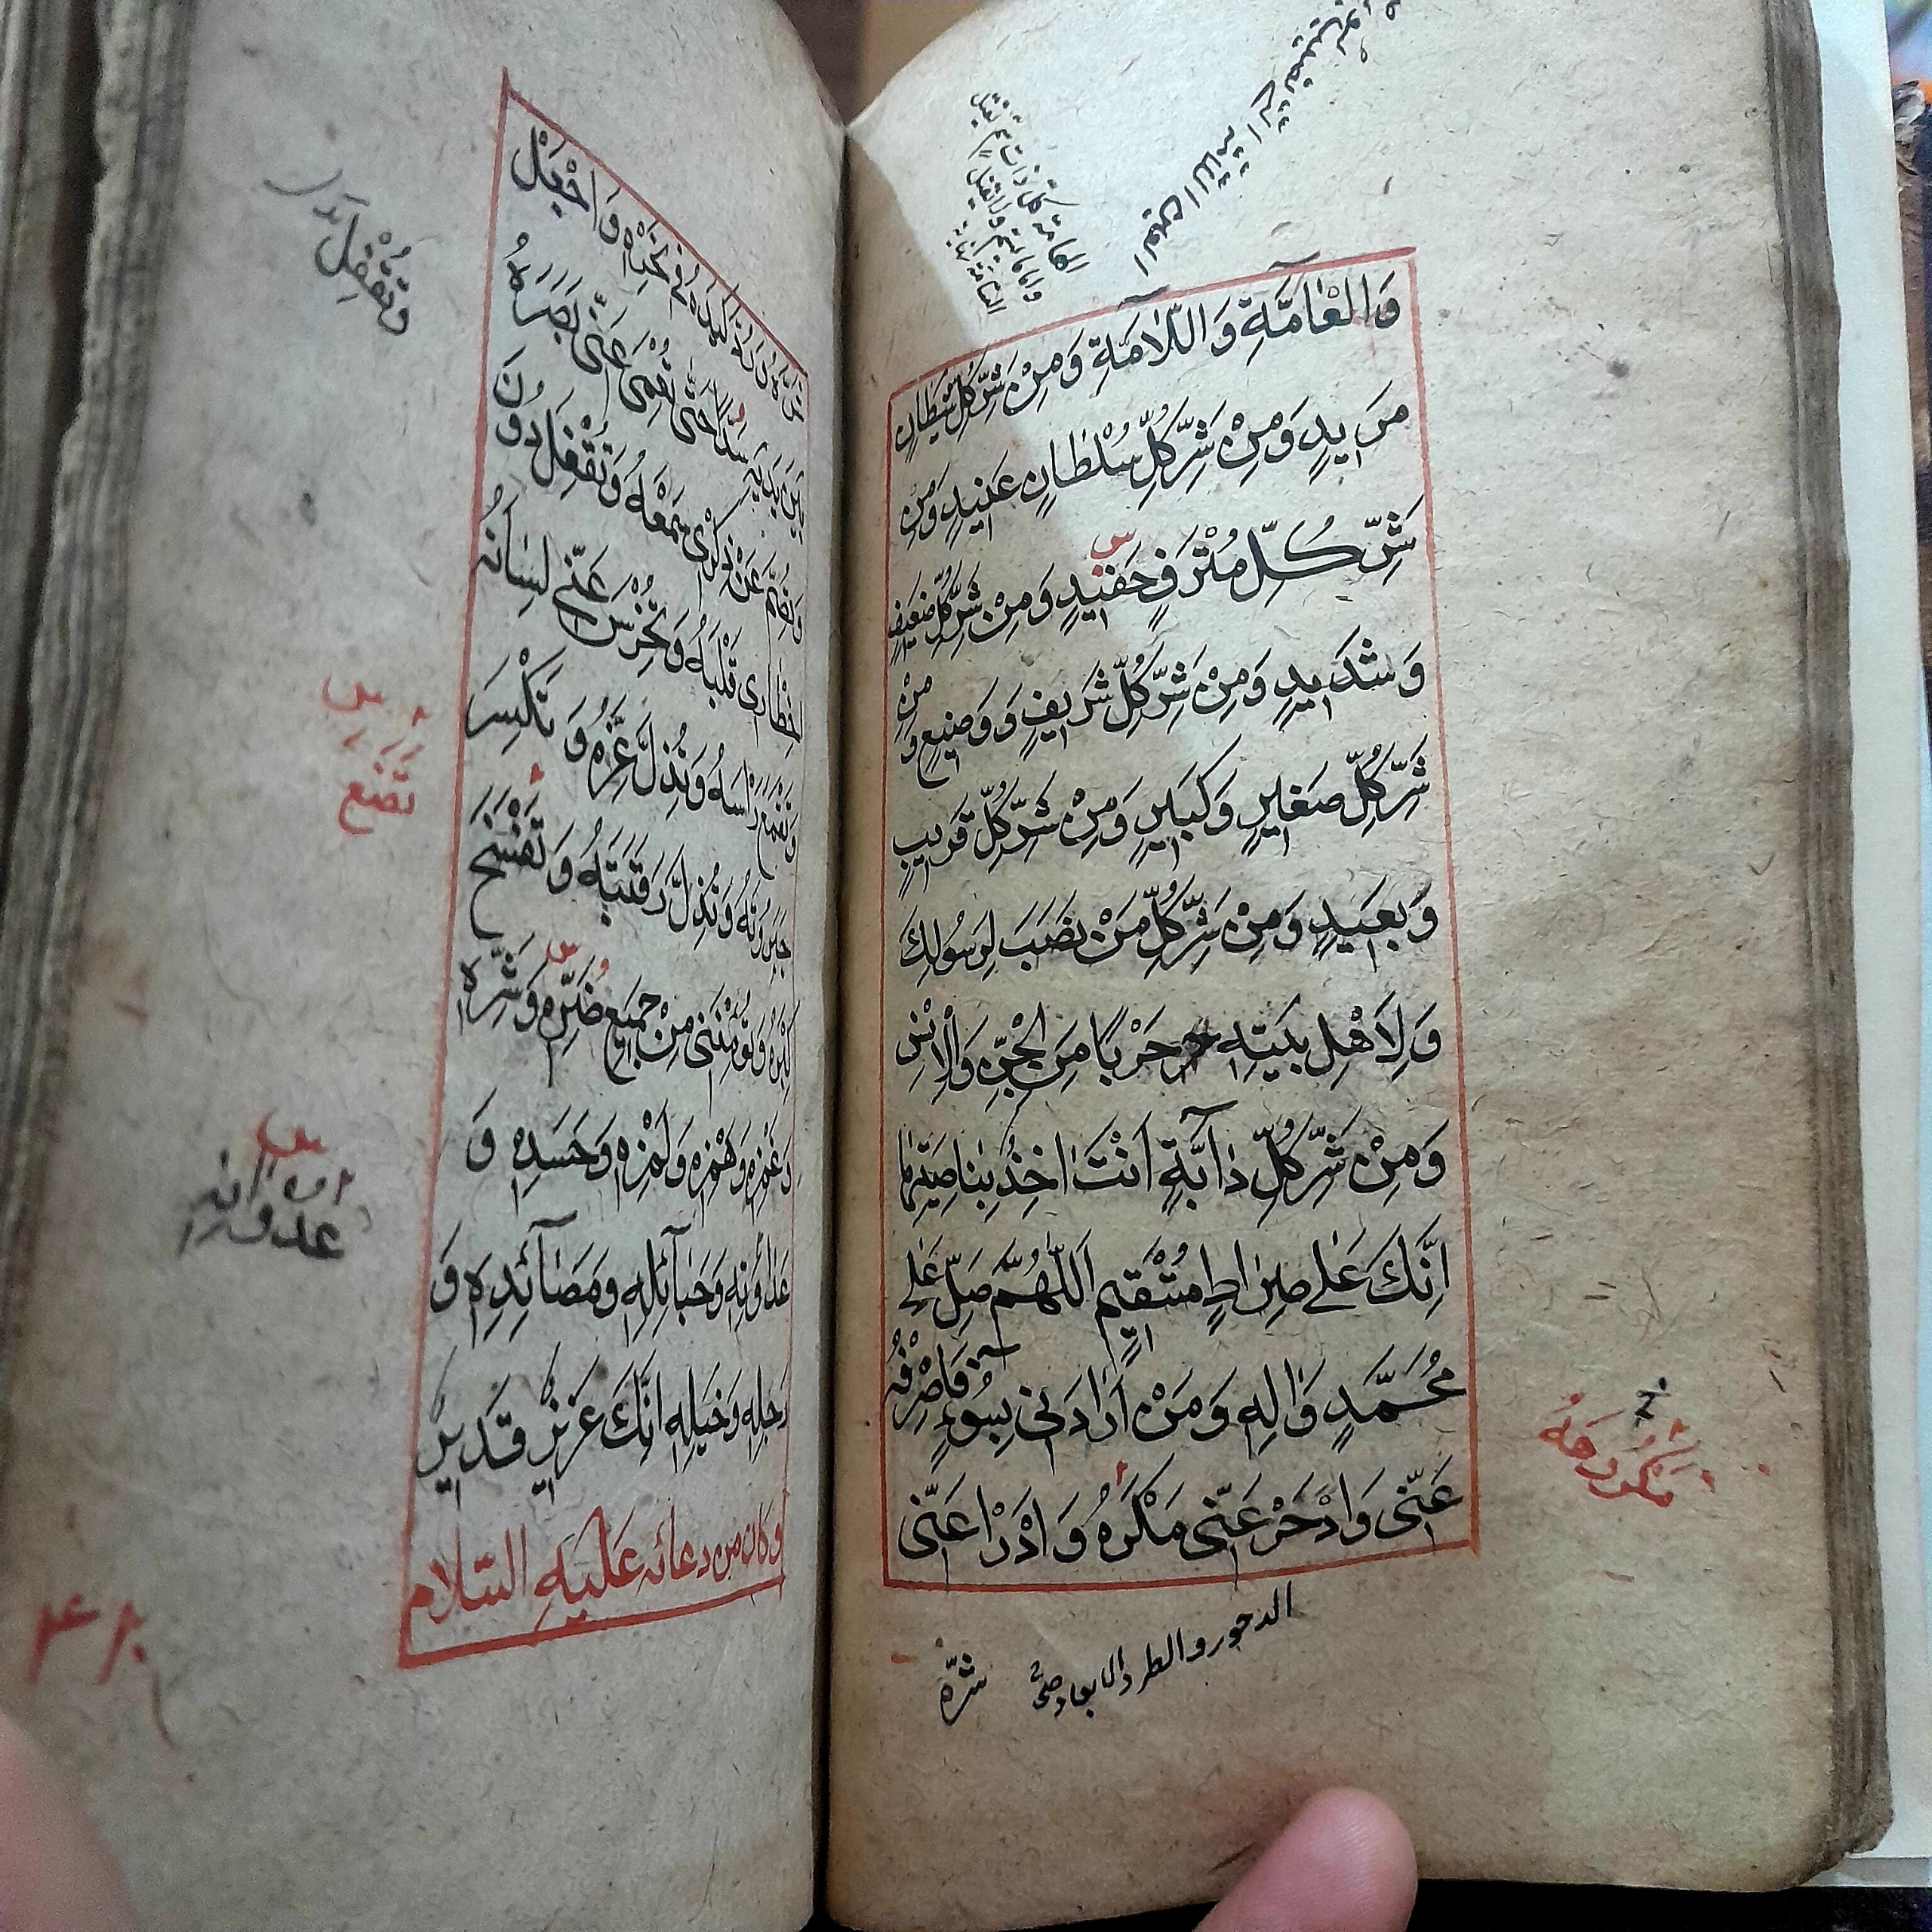 وَالْعَامَّةِ وَاللَّامَّةِ وَمِنْ شَرِّ كُلِّ شَيْطَانٍ
مَرِيدٍ وَمِنْ شَرِّ كُلِّ سُلْطَانٍ عَنِيدٍ وَمِنْ
شَرِّ كُلِّ مُتْرَفٍ حَفِيدٍ وَمِنْ شَرِّ كُلِّ ضَعِيفٍ
وَشَدِيدٍ وَمِنْ شَرِّ كُلِّ شَرِيفٍ وَوَضِيعٍ وَمِنْ
شَرِّ كُلِّ صَغِيرٍ وَكَبِيرٍ وَمِنْ شَرِّ كُلِّ قَرِيبٍ
وَبَعِيدٍ وَمِنْ شَرِّ كُلِّ مَنْ نَصَبَ لِرَسُولِكَ
وَلِأَهْلِ بَيْتِهِ حَرْبًا مِنَ الْجِنِّ وَالْإِنْسِ
وَمِنْ شَرِّ كُلِّ دَآبَّةٍ اَنْتَ اٰخِذٌ بِنَاصِيَتِهَا
اِنَّكَ عَلٰى صِرَاطٍ مُسْتَقِيمٍ اَللّٰهُمَّ صَلِّ عَلٰى
مُحَمَّدٍ وَاٰلِهِ وَمَنْ اَرَادَنِى بِسُوٓءٍ فَاصْرِفْهُ
عَنِّى وَادْحَرْ عَنِّى مَكْرَهُ وَادْرَأْ عَنِّى
الدحور والطرد والابعاد صح
شَرَّهُ
شَرَّهُ وَرُدَّ كَيْدَهُ فِى نَحْرِهِ وَاجْعَلْ
بَيْنَ يَدَيْهِ سَدًّا حَتّٰى تُعْمِىَ عَنِّى بَصَرَهُ
وَتُصِمَّ عَنْ ذِكْرِى سَمْعَهُ وَتُقْفِلَ دُونَ
اِخْطَارِى قَلْبَهُ وَتُخْرِسَ عَنِّى لِسَانَهُ
وَتَقْمَعَ رَاْسَهُ وَتُذِلَّ عِزَّهُ وَتَكْسِرَ
جَبَرُوتَهُ وَتُذِلَّ رَقَبَتَهُ وَتَفْسَخَ
كِبْرَهُ وَتُؤْمِنَنِى مِنْ جَمِيعِ ضَرِّهِ وَشَرِّهِ
وَغَمْزِهِ وَهَمْزِهِ وَلَمْزِهِ وَحَسَدِهِ وَ
عَدَاوَتِهِ وَحَبَآئِلِهِ وَمَصَآئِدِهِ وَ
رَجِلِهِ وَخَيْلِهِ اِنَّكَ عَزِيزٌ قَدِيرٌ
وَكَانَ مِنْ دعائه عَلَيْهِ السَّلَام